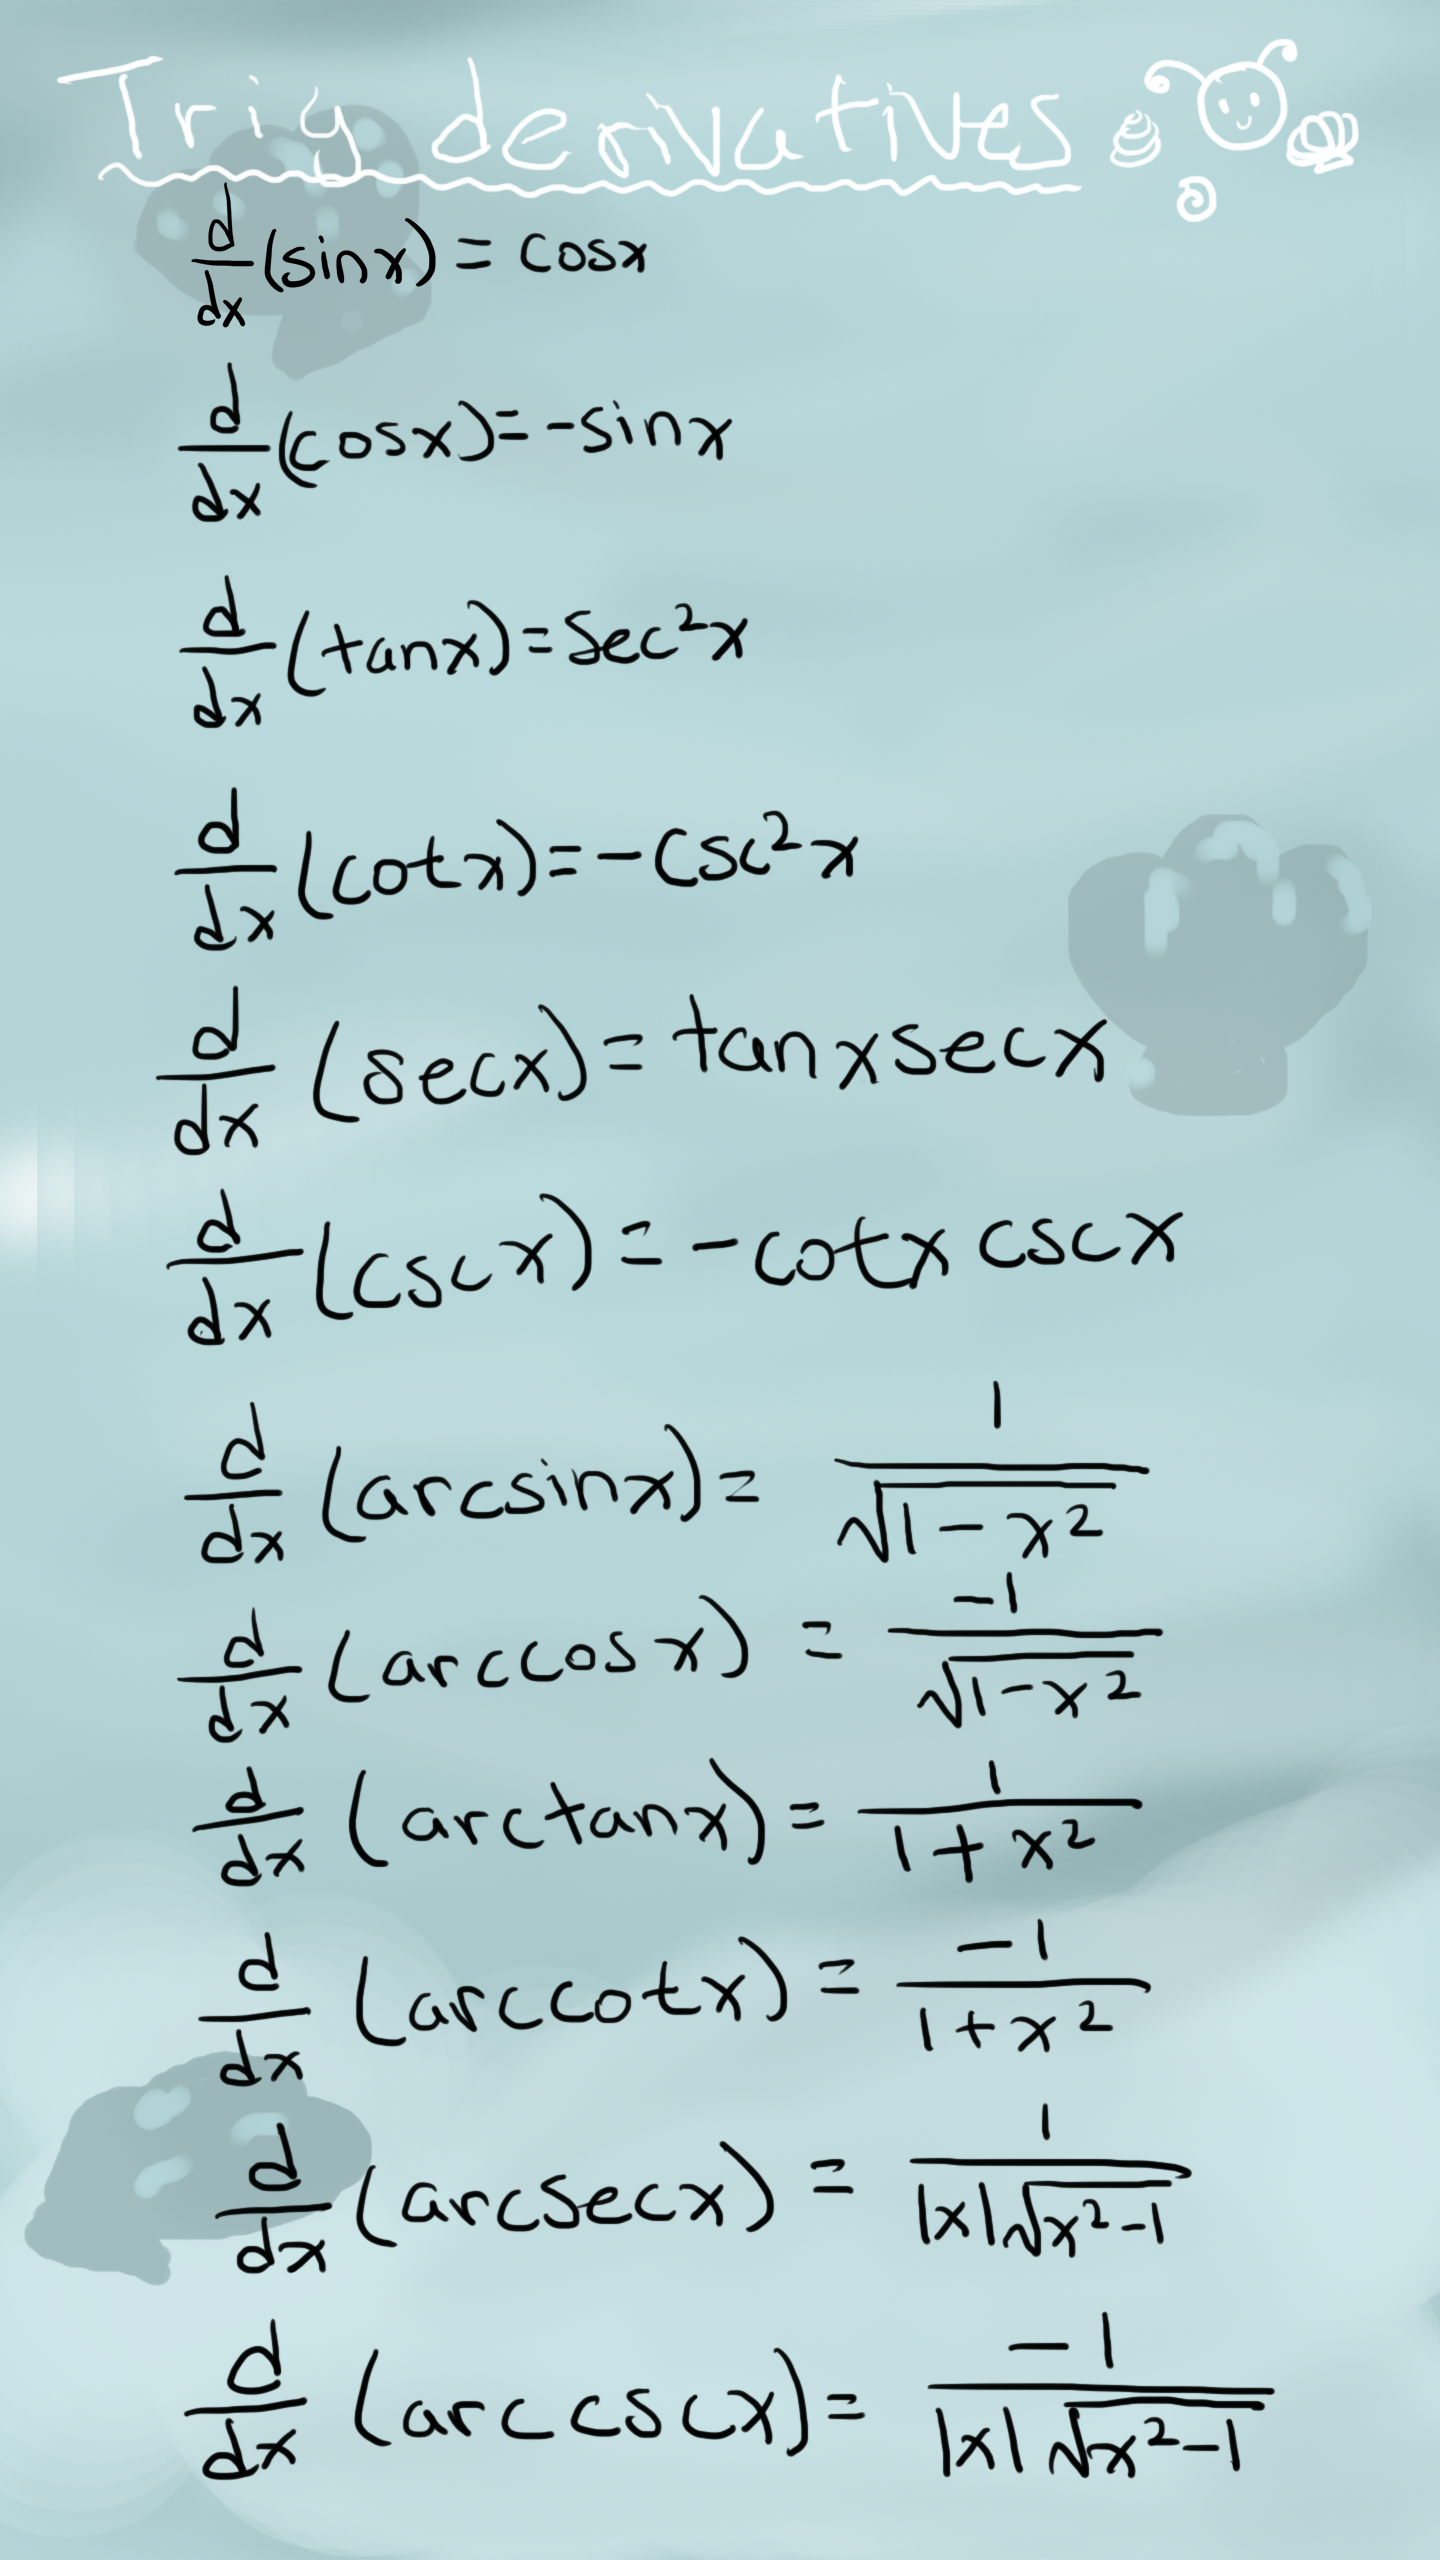 Trig derivatives
d/dx (sinx) = cosx
d/dx (cosx) = -sinx
d/dx (tanx) = sec²x
d/dx (cotx) = -csc²x
d/dx (secx) = tanxsecx
d/dx (cscx) = -cotx cscx
d/dx (arcsinx) = 1/√(1-x²)
d/dx (arccosx) = -1/√(1-x²)
d/dx (arctanx) = 1/(1+x²)
d/dx (arccotx) = -1/(1+x²)
d/dx (arcsecx) = 1/(|x|√(x²-1))
d/dx (arccscx) = -1/(|x|√(x²-1))